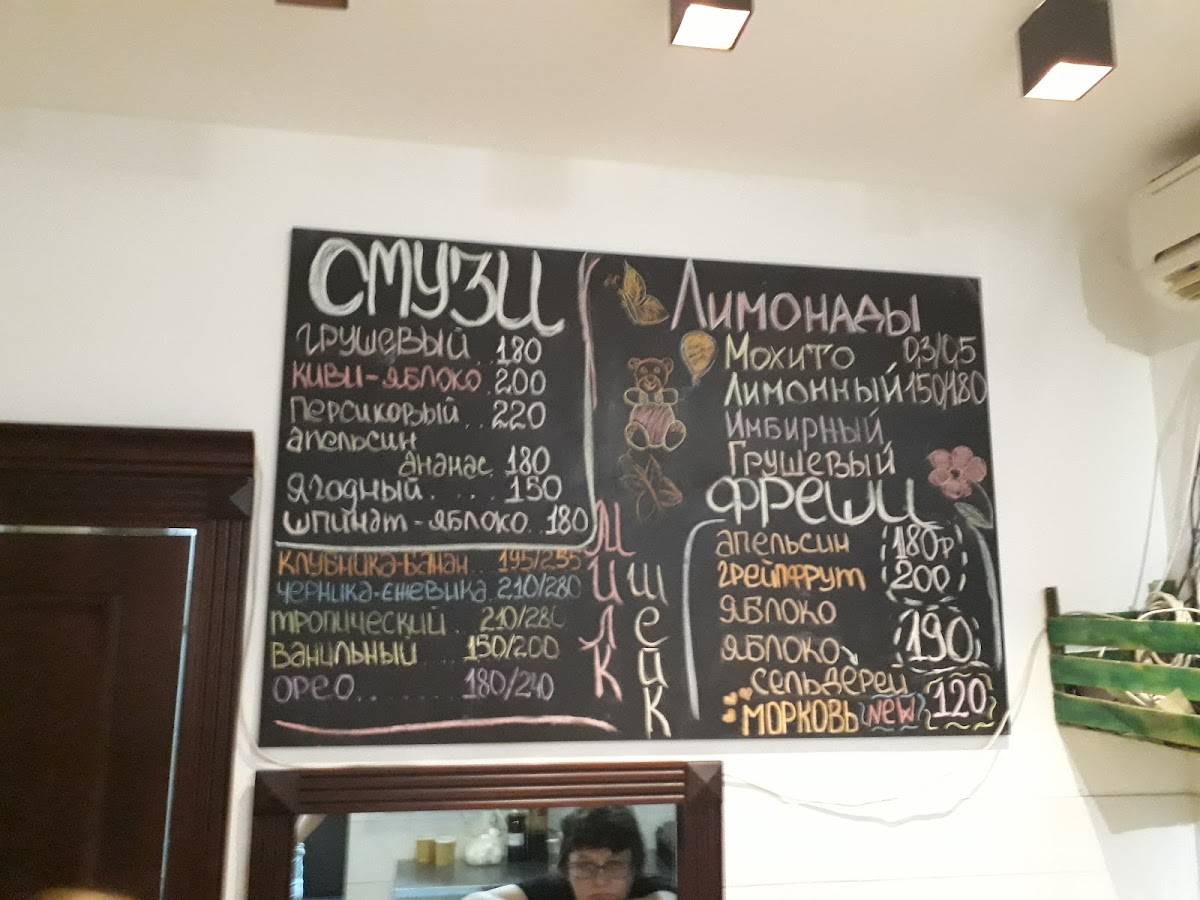 СМУЗИ
ГРУШЕВЫЙ..180
КИВИ-ЯБЛОКО.200
ПЕРСИКОВЫЙ..220
АПЕЛЬСИН
АНАНАС.180
ЯГОДНЫЙ.....150
ШПИНАТ-ЯБЛОКО..180
МИЛК
ШЕЙК
КЛУБНИКА-БАНАН..195/255
ЧЕРНИКА-ЕЖЕВИКА.210/280
ТРОПИЧЕСКИЙ..210/280
ВАНИЛЬНЫЙ....150/200
ОРЕО.........180/240
ЛИМОНАДЫ
МОХИТО 0,3/0,5
ЛИМОННЫЙ 150/180
ИМБИРНЫЙ
ГРУШЕВЫЙ
ФРЕШИ
АПЕЛЬСИН 180р
ГРЕЙПФРУТ 200
ЯБЛОКО
ЯБЛОКО 190
СЕЛЬДЕРЕЙ
МОРКОВЬ NEW 120